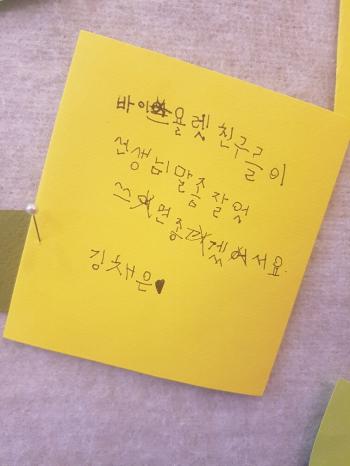 바이올렛 친구들이
선생님 말슴 잘 엇
쓰면 좋겠서요.
김채은